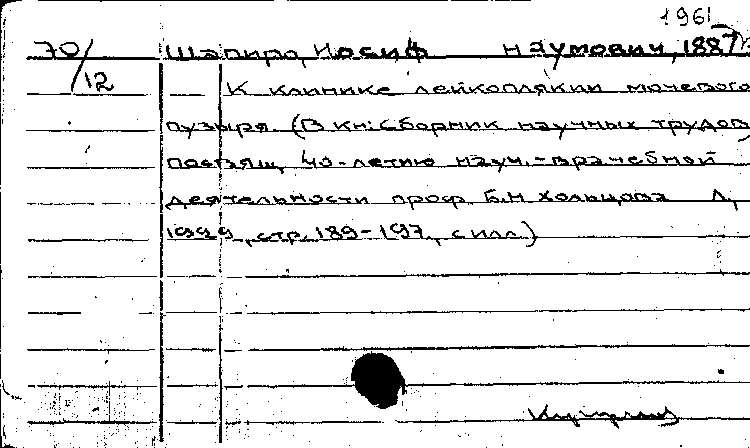 1961
70/12 Шапиро, Иосиф Наумович, 1887
К клинике лейкоплякии мочевого
пузыря. (В кн: Сборник научных трудов,
посвящ. 40-летию науч.-врачебной
деятельности проф. Б.Н. Хольцова Л,
1929, стр. 189-197, с илл.)